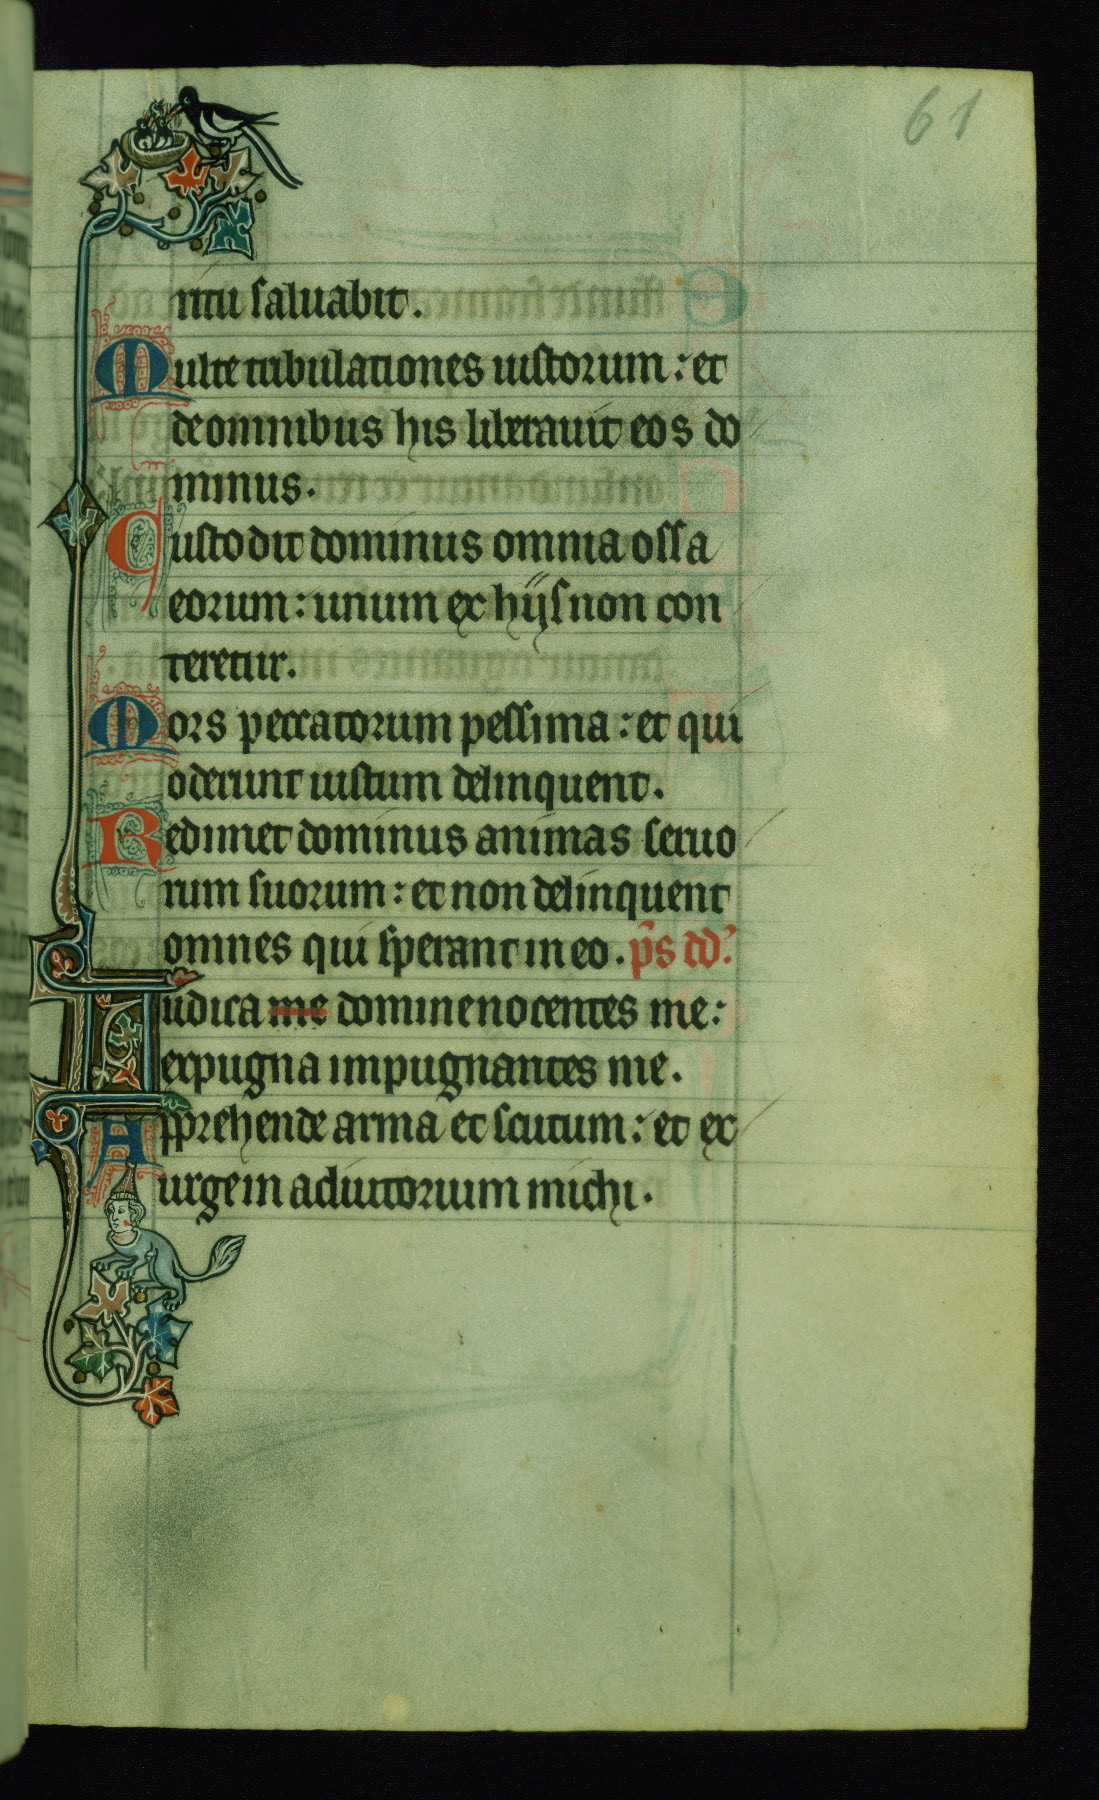 61
ritu saluabit.
Multe tribulationes iustorum: et
de omnibus his liberauit eos do
minus.
Custodit dominus omnia ossa
eorum: unum ex hijs non con
teretur.
Mors peccatorum pessima: et qui
oderunt iustum delinquent.
Redimet dominus animas seruo
rum suorum: et non delinquent
omnes qui sperant in eo. ps dd'
Iudica me domine nocentes me:
expugna impugnantes me.
Apprehende arma et scutum: et ex
urge in adiutorium michi.